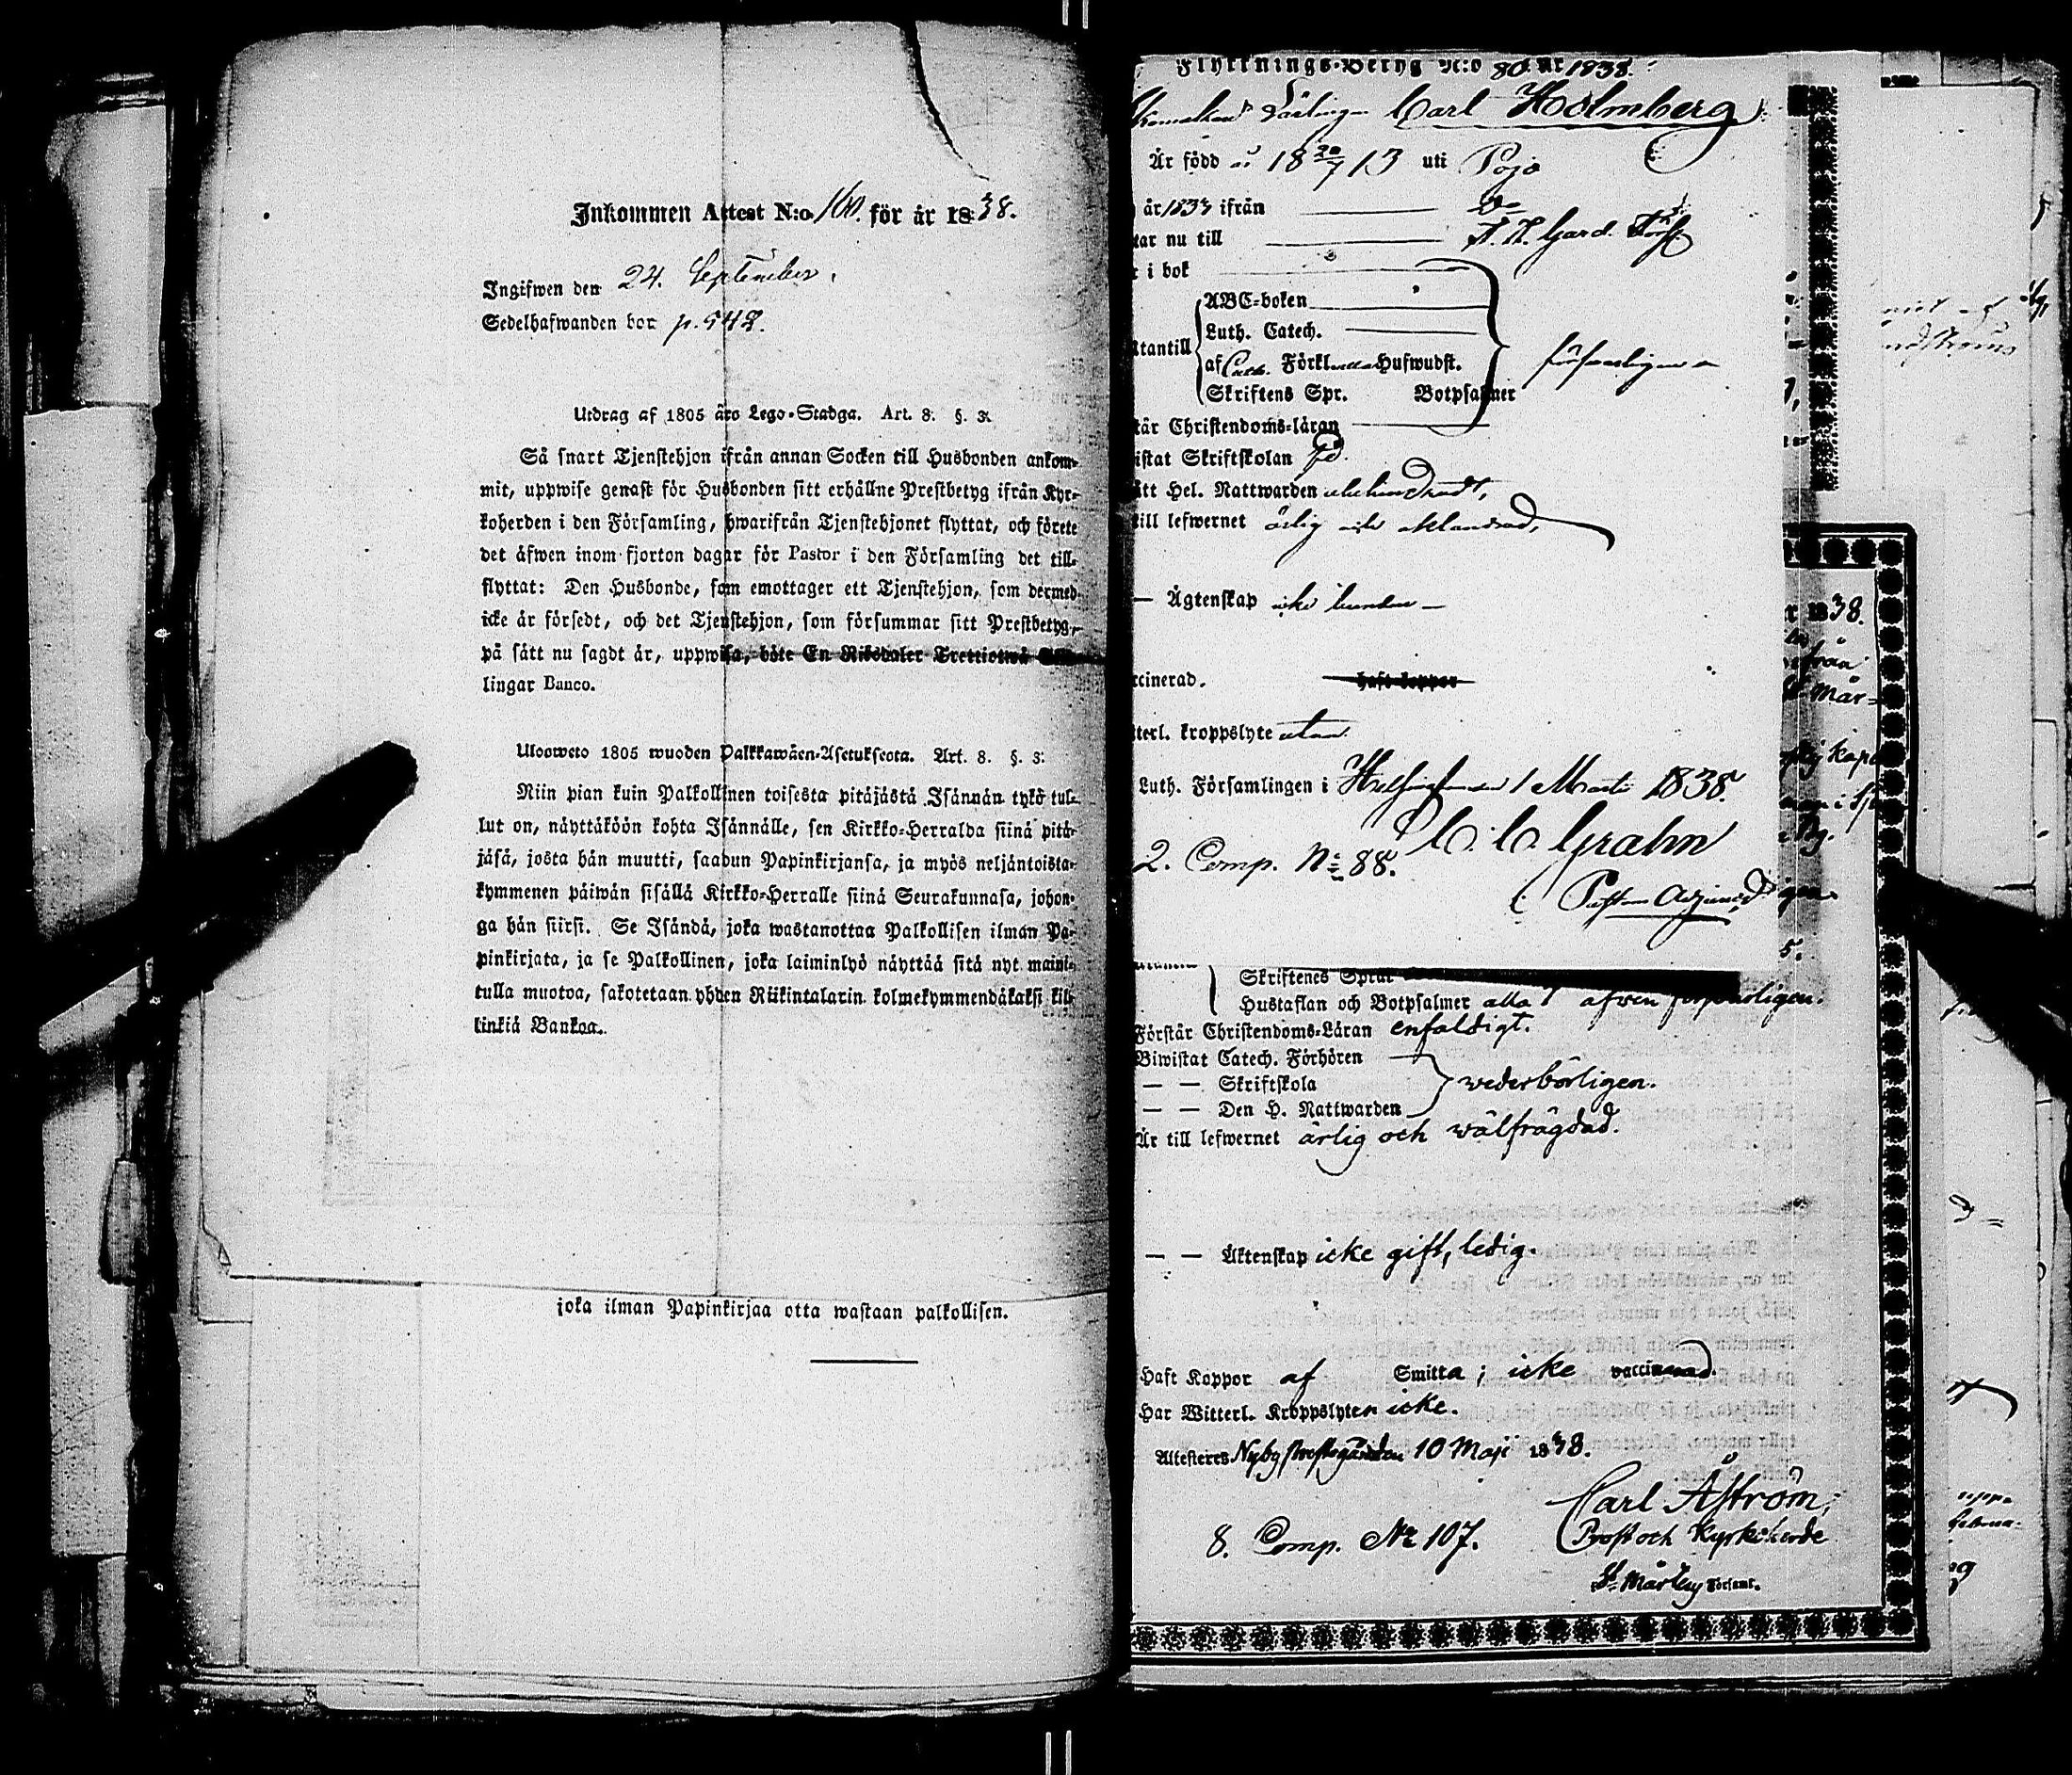 Inkommen Attest N:o 160. för år 1838.
Ingifwen den 24. September.
Sedelhafwanden bor p. 542.
Utdrag af 1805 års Lego-Stadga. Art. 8. §. 3.
Så snart Tjenstehjon ifrån annan Socken till Husbonden ankom-
mit, uppwise genast för Husbonden sitt erhållne Prestbetyg ifrån Kyr-
koherden i den Församling, hwarifrån Tjenstehjonet flyttat, och förete
det äfwen inom fjorton dagar för Pastor i den Församling det till-
flyttat: Den Husbonde, som emottager ett Tjenstehjon, som dermed
icke är försedt, och det Tjenstehjon, som försummar sitt Prestbetyg,
på sätt nu sagdt är, uppwisa, böte En Riksdaler Trettiotwå
lingar Banco.
Ulosweto 1805 wuoden Palkkawäen-Asetuksesta. Art. 8. §. 3.
Niin pian kuin Palkollinen toisesta pitäjästä Isännän tykö tul-
lut on, näyttäköön kohta Isännälle, sen Kirkko-Herralda siinä pitä-
jäsä, josta hän muutti, saadun Papinkirjansa, ja myös neljäntoista-
kymmenen päiwän sisällä Kirkko-Herralle siinä Seurakunnasa, johon-
ga hän siirsi. Se Isändä, joka wastanottaa Palkollisen ilman Pa-
pinkirjata, ja se Palkollinen, joka laiminlyö näyttää sitä nyt maini-
tulla muotoa, sakotetaan yhden Riikintalarin kolmekymmendäkaksi kil-
linkiä Bankoa.
joka ilman Papinkirjaa otta wastaan palkollisen.
Flyttnings-Betyg N:o 80 år 1838.
Lärling Carl Holmberg
Är född år 18 20/7 13 uti Pojo
år 1833 ifrån Do
tar nu till F. K. Gard.
r i bok
ABC-boken
Luth. Catech.
Utantill
af Cate. Förkl Hufwudst.
Skriftens Spr. Botpsalmer
försvarligen
tår Christendoms-läran
istat Skriftskolan
ått Hel. Nattwarden obehindradt,
till lefwernet ärlig och oklandrad,
— Ägtenskap icke bunden —
ccinerad. haft koppor
tterl. kroppslyte utan
Luth. Församlingen i Helsingfors den 1 Martii 1838.
C. C. Grahn
Pastors Adjunct
2. Comp. No 88.
r 1838.
ifrån
Mår-
Skriftenes Språk
Hustaflan och Botpsalmer alla äfwen försvarligen.
Förstår Christendoms-Läran enfaldigt.
Biwistat Catech. Förhören
— — Skriftskola
wederbörligen.
— — Den H. Nattwarden
Är till lefwernet ärlig och wälfrägdad.
— — Äktenskap icke gift, ledig.
Haft Koppor af Smitta; icke vaccinerad.
Har Witterl. Kroppslyten icke.
Attesteres Nyby prestgården 10 Maji 1838.
Carl Åström,
Prost och Kyrkoherde
St Mårtens Församl.
8. Comp. No 107.